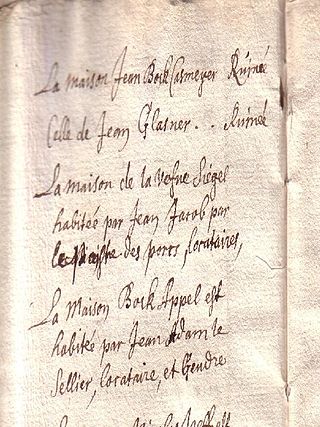 La maison Jean Bock Casmeyer Ruinée
Celle de Jean Glasner . . Ruinée
La maison de la Vefue Siégel
habitée par Jean Jacob par
des porcs, locataires,
La Maison Bock Appel est
habitée par Jean Adam le
Sellier, locataire, et Gendre